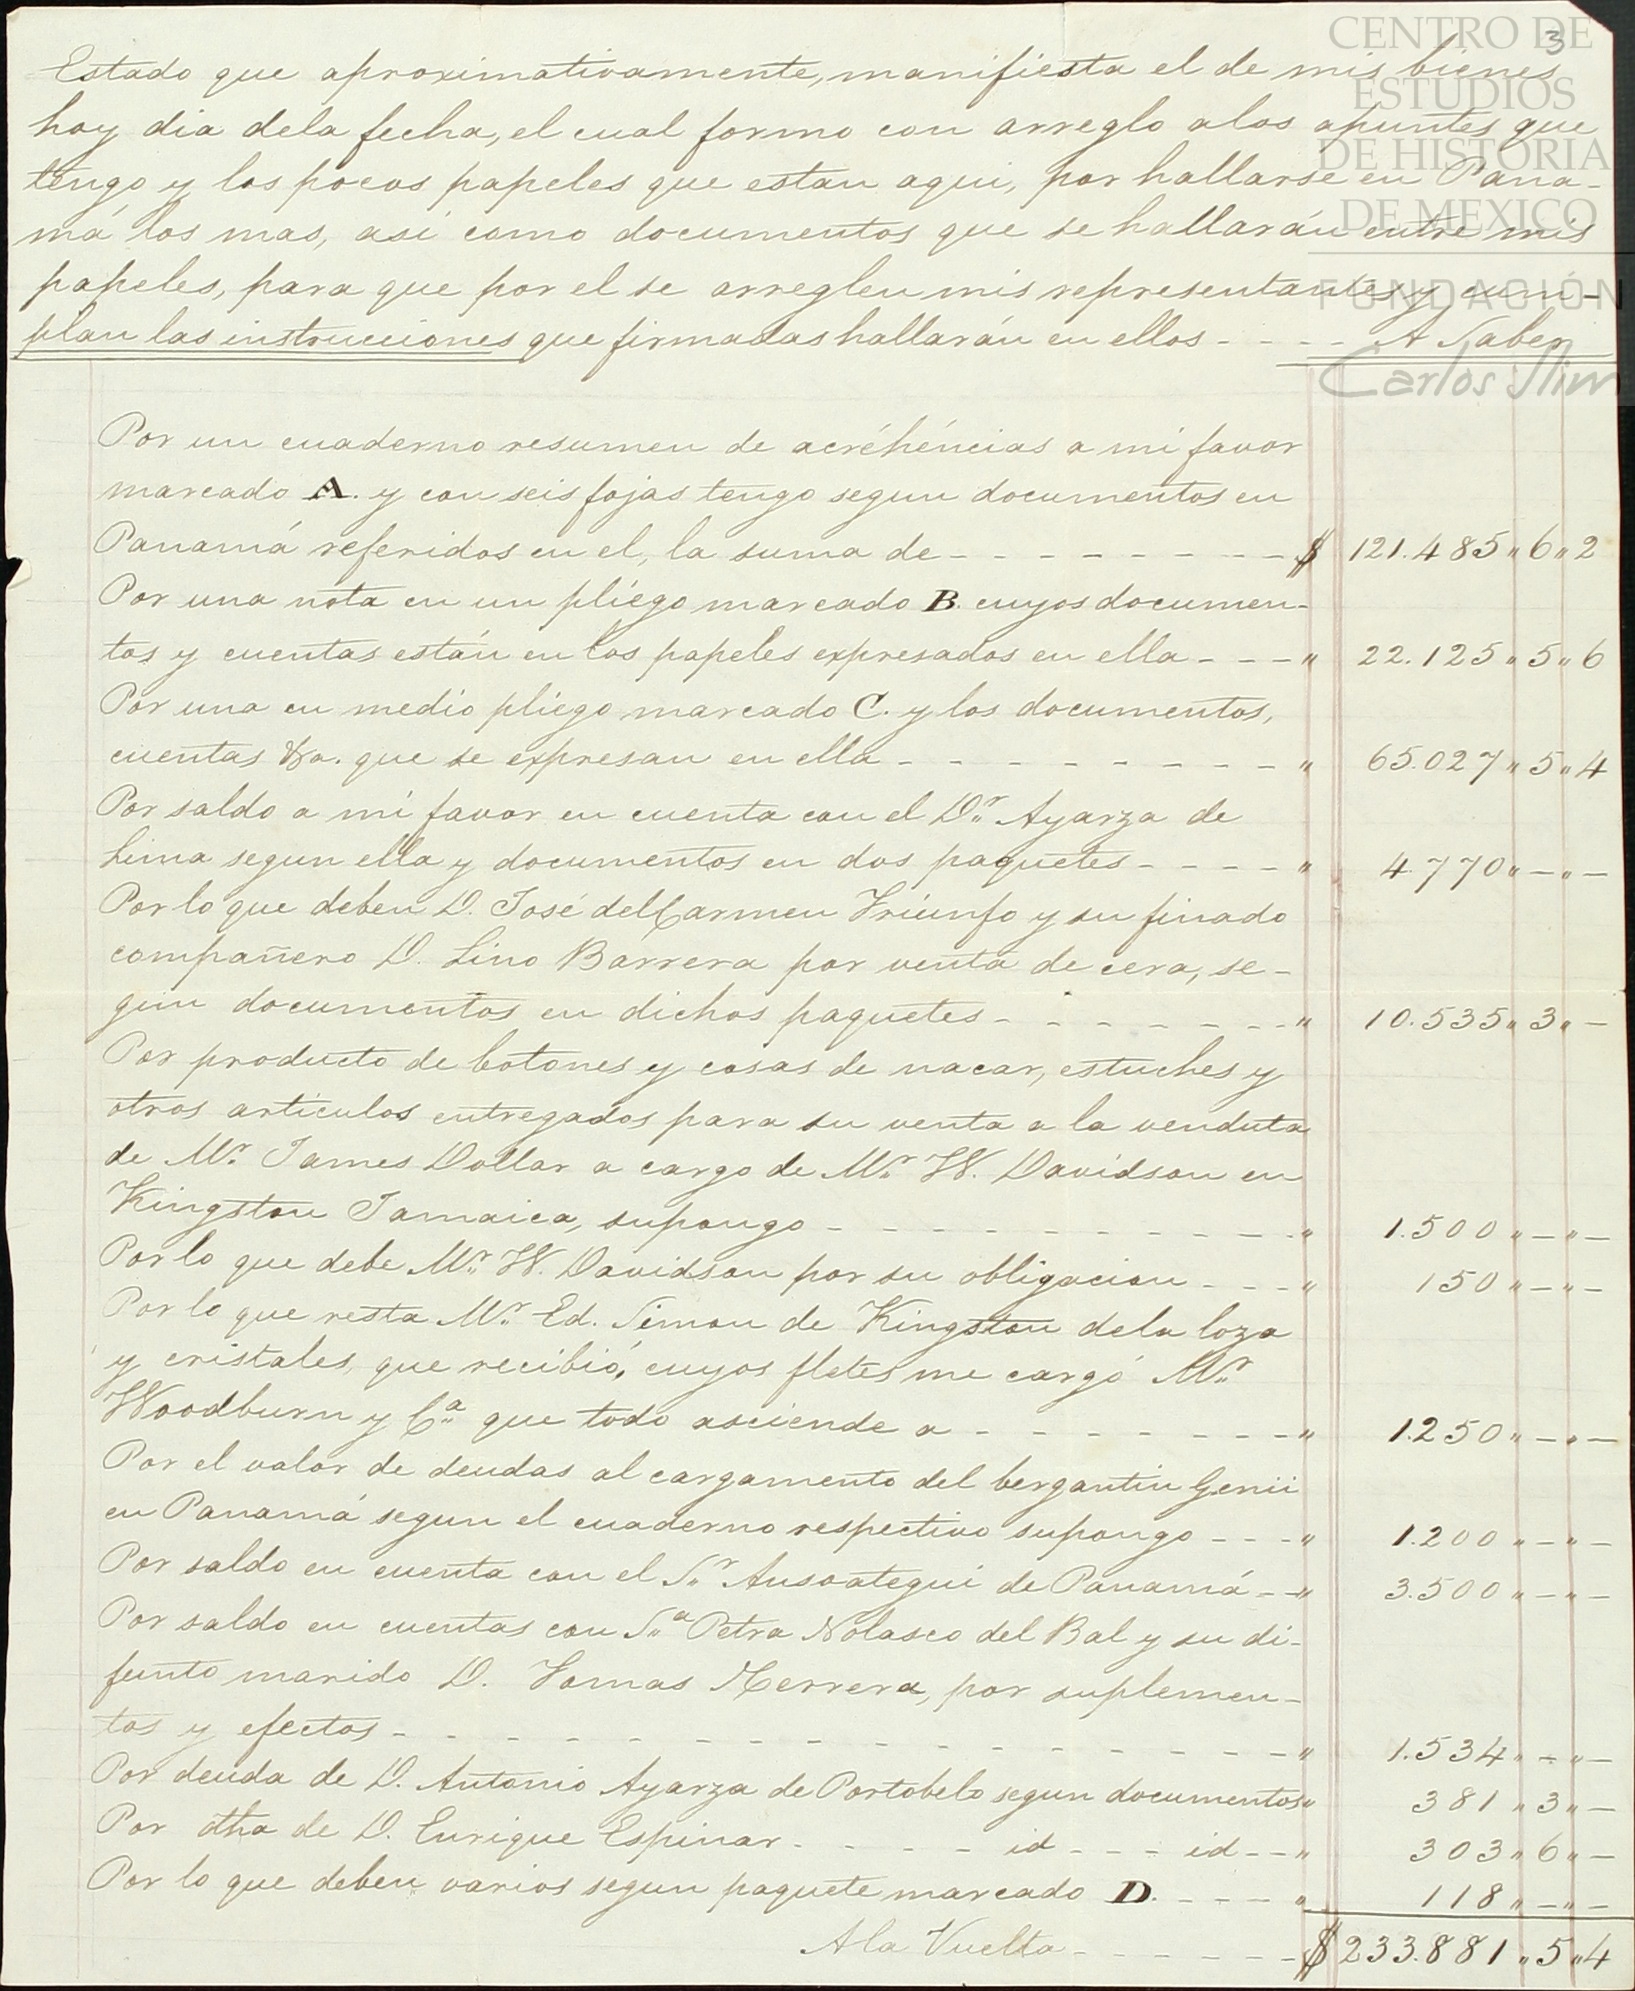 3
CENTRO DE
ESTUDIOS
DE HISTORIA
DE MEXICO
FUNDACIÓN
Carlos Slim
Estado que aproximativamente, manifiesta el de mis bienes
hoy dia dela fecha, el cual formo con arreglo alos apuntes que
tengo y los pocos papeles que estan aqui, por hallarse en Pana-
má los mas, asi como documentos que se hallarán entre mis
papeles, para que por el se arreglen mis representantes y cum-
plan las instrucciones que firmadas hallarán en ellos - - - - A Saber
Por un cuaderno resumen de acréhéncias a mi favor
marcado A. y con seis fojas tengo segun documentos en
Panamá referidos en el, la suma de - - - - - - - - $ 121.485 " 6 " 2
Por una nota en un pliego marcado B. cuyos documen-
tos y cuentas están en los papeles expresados en ella - - - " 22.125 " 5 " 6
Por una en medio pliego marcado C. y los documentos,
cuentas &a. que se expresan en ella - - - - - - - - - " 65.027 " 5 " 4
Por saldo a mi favor en cuenta con el Dr. Ayarza de
Lima segun ella y documentos en dos paquetes - - - - " 4.770 " — " —
Por lo que deben D. José del Carmen Triunfo y su finado
compañero D. Lino Barrera por venta de cera, se-
gun documentos en dichos paquetes - - - - - - - - " 10.535 " 3 " —
Por producto de botones y cosas de nacar, estuches y
otros articulos entregados para su venta a la venduta
de Mr. James Dollar a cargo de Mr. W. Davidson en
Kingston Jamaica, supongo - - - - - - - - - - - " 1.500 " — " —
Por lo que debe Mr. W. Davidson por su obligacion - - - " 150 " — " —
Por lo que resta Mr. Ed. Simon de Kingston dela loza
y cristales, que recibió, cuyos fletes me cargó Mr.
Woodburn y Ca. que todo asciende a - - - - - - - - " 1.250 " — " —
Por el valor de deudas al cargamento del bergantin Genii
en Panamá segun el cuaderno respectivo supongo - - - " 1.200 " — " —
Por saldo en cuenta con el Sr. Ansoategui de Panamá - - " 3.500 " — " —
Por saldo en cuentas con Sa. Petra Nolasco del Bal y su di-
funto marido D. Tomas Herrera, por suplemen-
tos y efectos - - - - - - - - - - - - - - - - - " 1.534 " — " —
Por deuda de D. Antonio Ayarza de Portobelo segun documentos " 381 " 3 " —
Por dha de D. Enrique Espinar - - - - id - - - id - - " 303 " 6 " —
Por lo que deben varios segun paquete marcado D. - - - - " 118 " — " —
A la Vuelta - - - - - - - $ 233.881 " 5 " 4